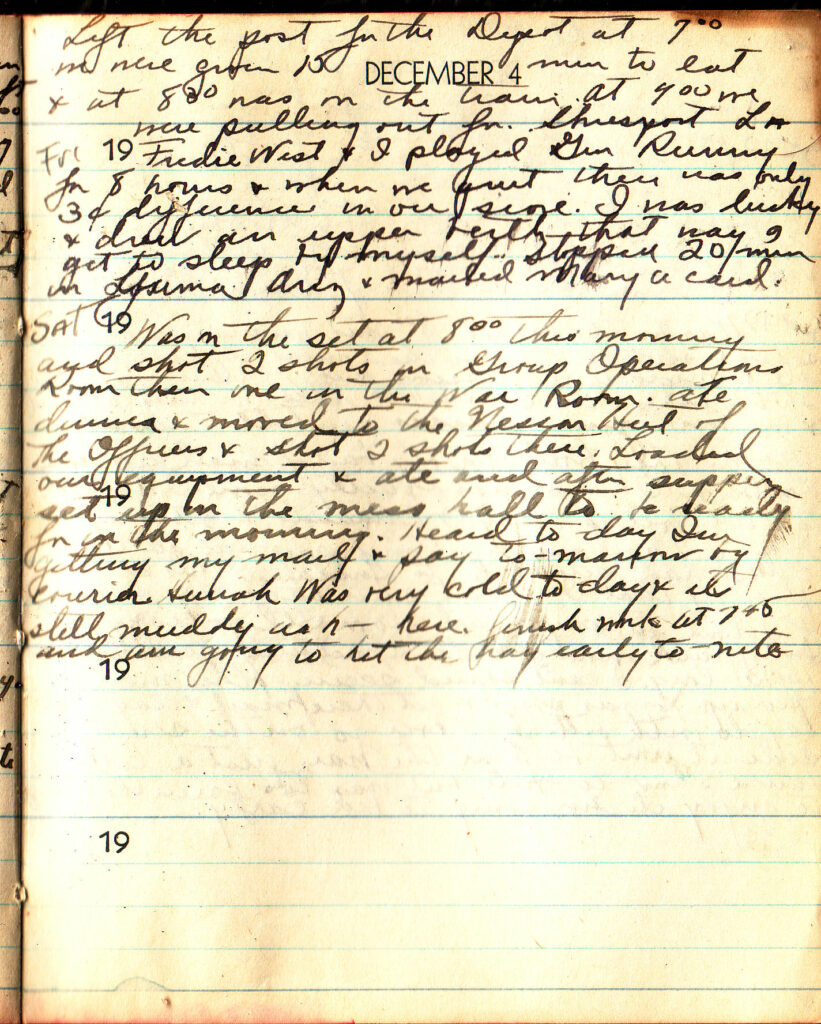 Left the post for the Depot at 7⁰⁰
we were given 15 min to eat
DECEMBER 4
& at 8³⁰ was on the train. at 9⁰⁰ we
were pulling out for. Shresport La
Fri 19 Fredie West & I played Gin Rummy
for 8 hours & when we quit there was only
3¢ dyference in our score. I was lucky
& drew an upper berth that way I
get to sleep by myself. Stopped 20 min
in & mailed Mary a card.
Sat 19 Was on the set at 8⁰⁰ this morning
and shot 2 shots in Group Operations
Room then one in the War Room. ate
dinner & moved to the Hut of
the Officers & shot 2 shots there. Loaded
our equipment & ate and after supper
19
set up in the mess hall to be ready
for in the morning. Heard to day I'm
getting my mail & say to-morrow by
courier Hurrah Was very cold to day & its
still muddy as h— here. finish work at 7⁴⁵
and am going to hit the hay early to-nite
19
19